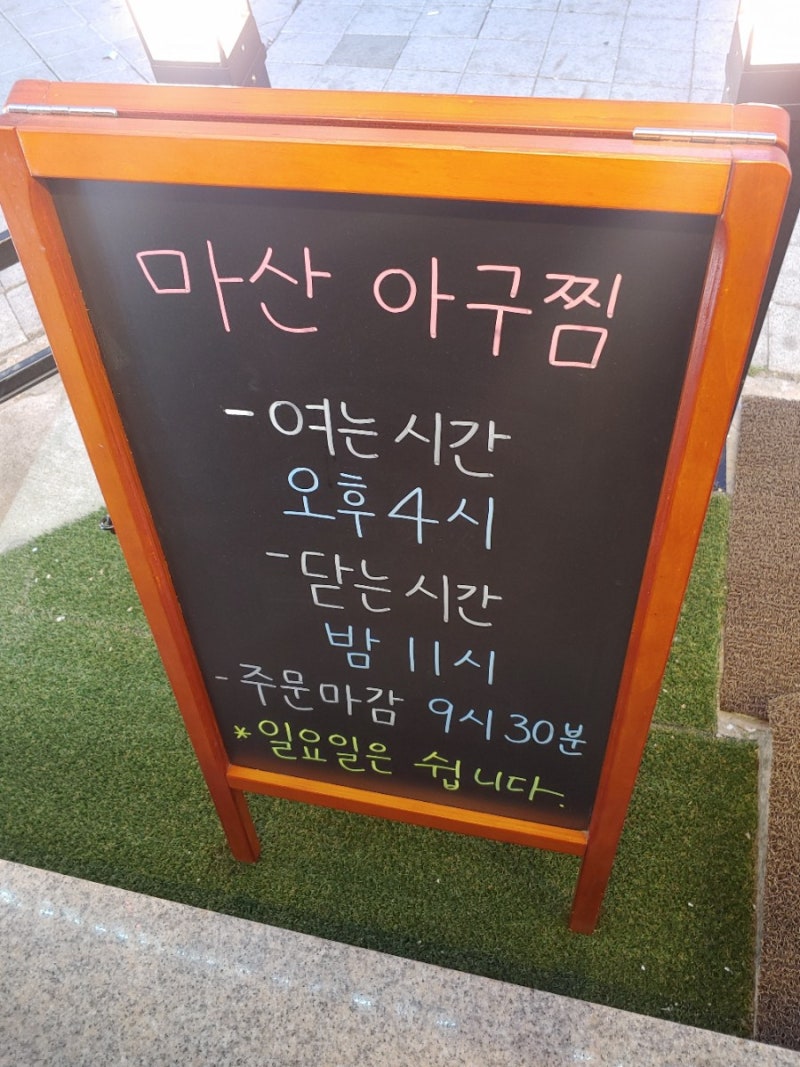 마산 아구찜
- 여는 시간
오후 4시
- 닫는 시간
밤 11시
- 주문마감 9시 30분
* 일요일은 쉽니다.